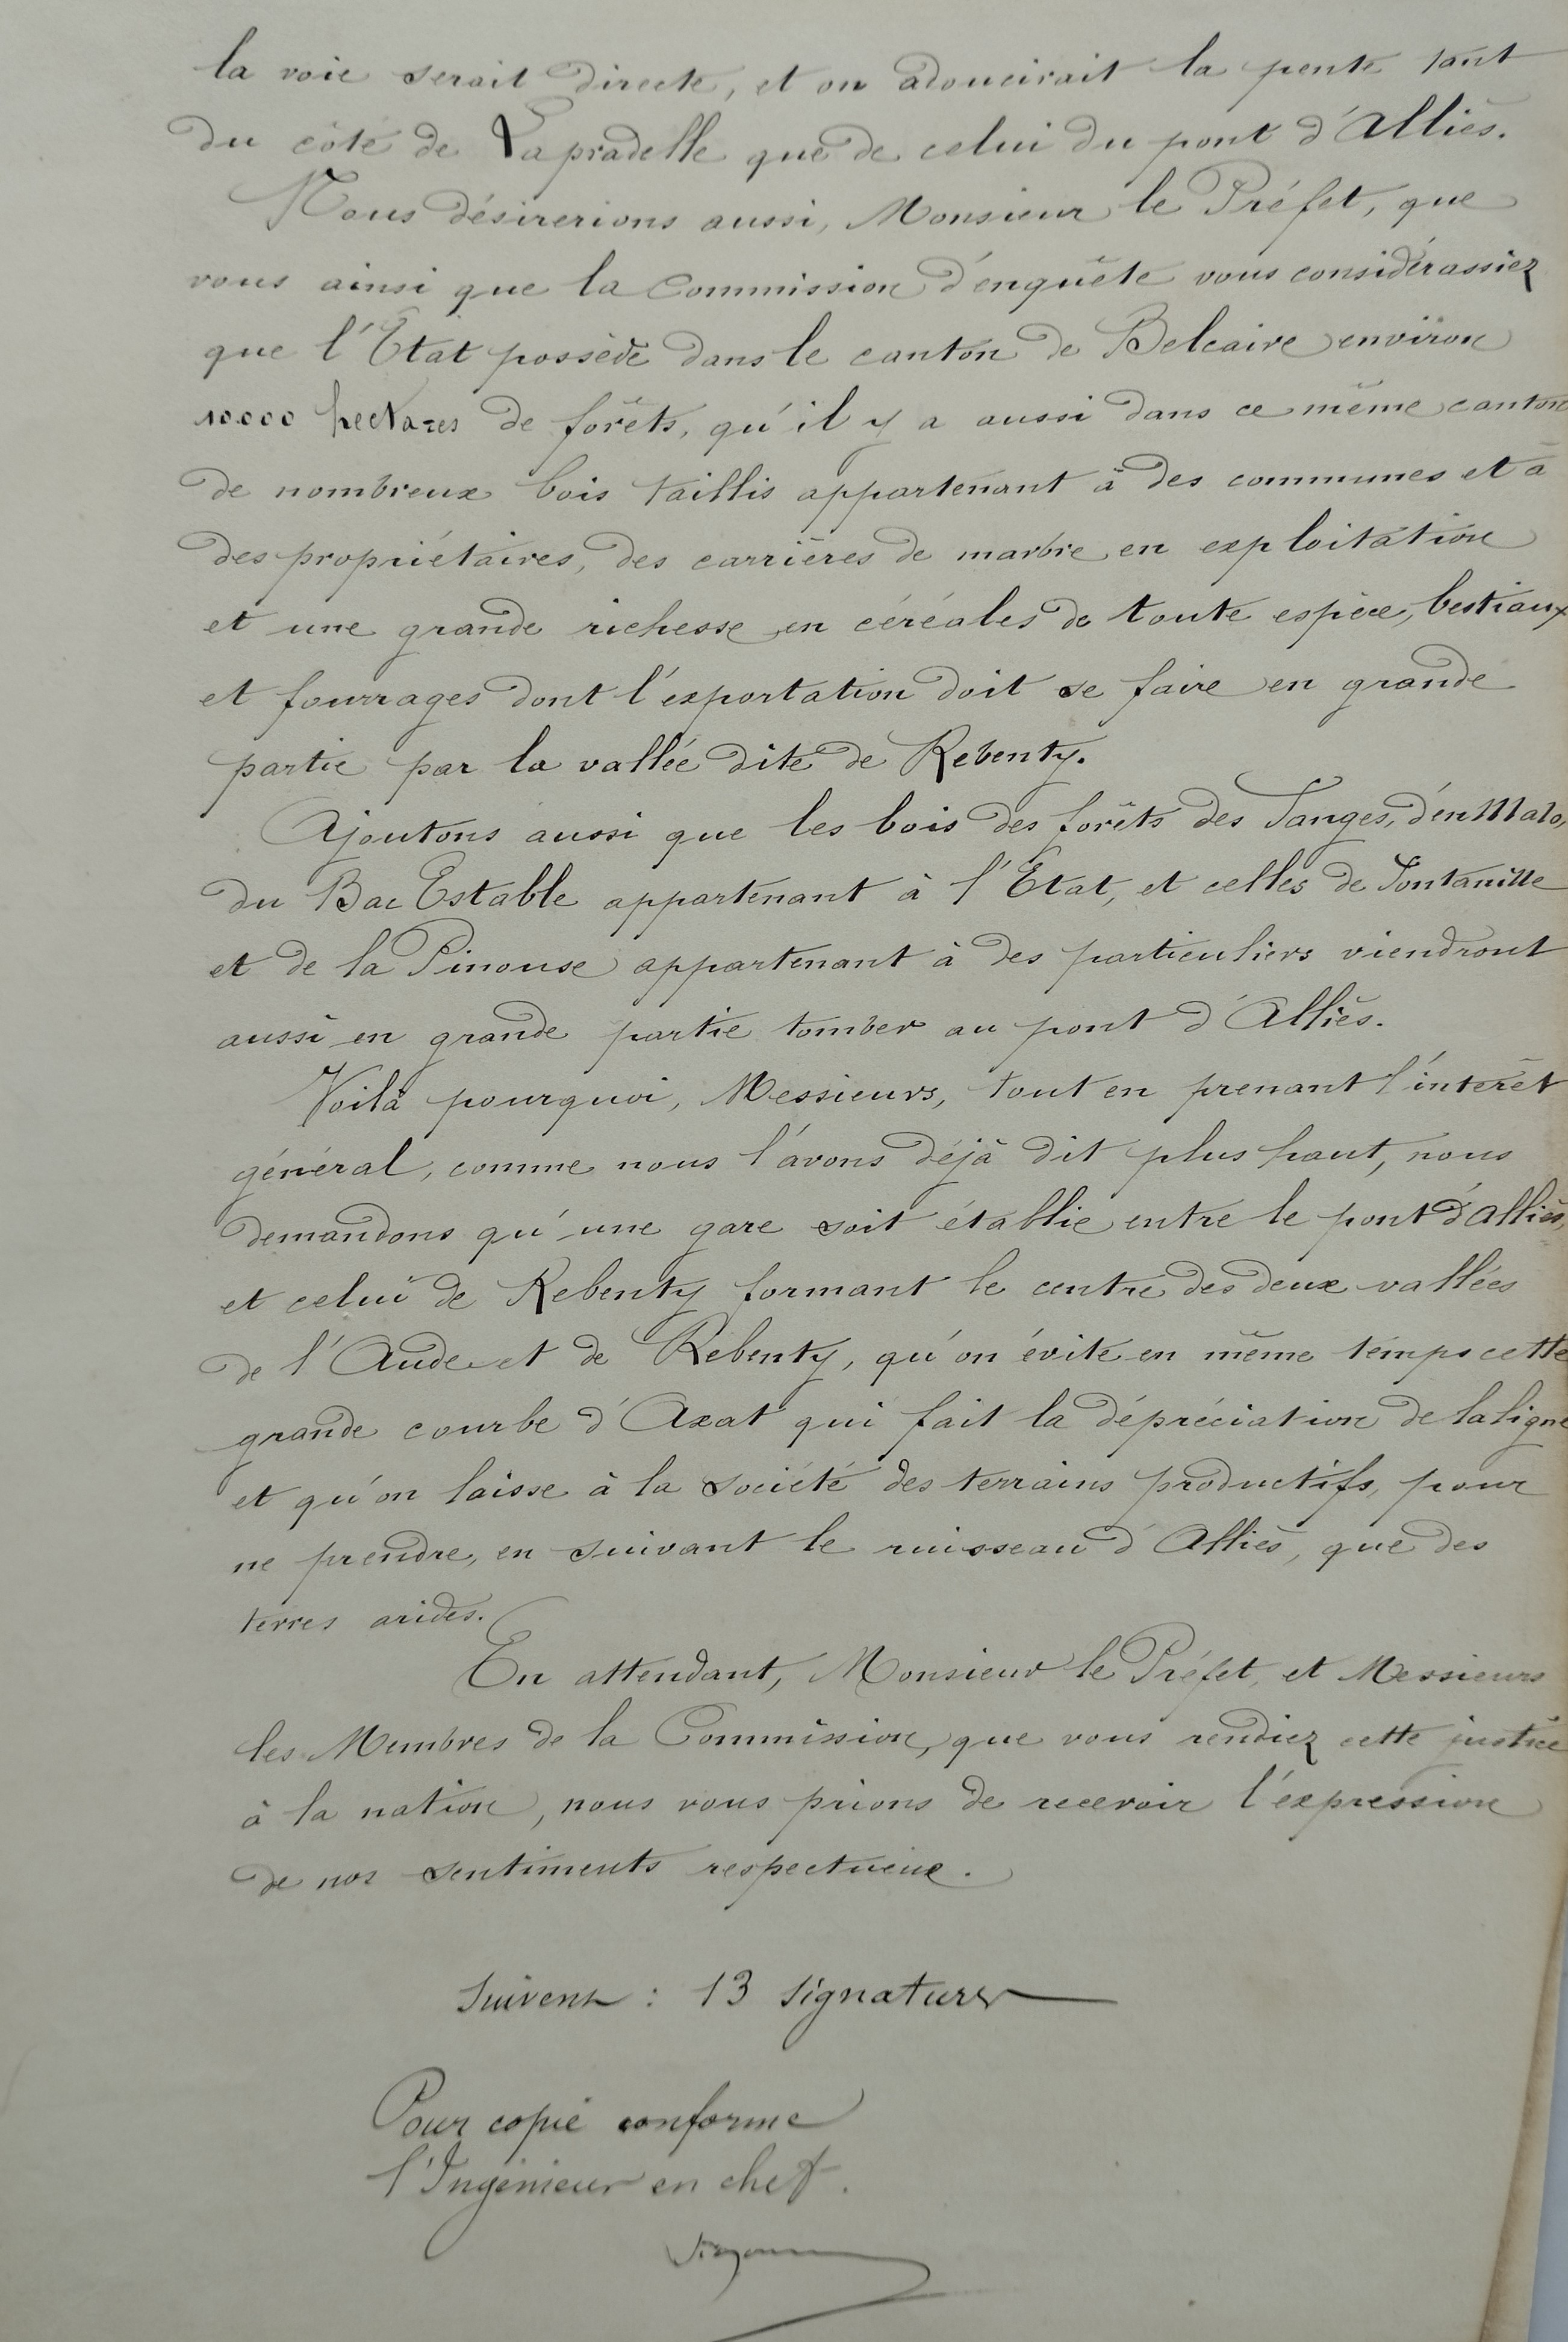 la voie serait directe, et on adoucirait la pente tant
du côté de Lapradelle que de celui du pont d'Alliès.
Nous désirerions aussi, Monsieur le Préfet, que
vous ainsi que la Commission d'enquête vous considérassiez
que l'Etat possède dans le canton de Belcaire environ
10.000 hectares de forêts, qu'il y a aussi dans ce même canton
de nombreux bois taillis appartenant à des communes et à
des propriétaires, des carrières de marbre en exploitation
et une grande richesse en céréales de toute espèce, bestiaux
et fourrages dont l'exportation doit se faire en grande
partie par la vallée dite de Rebenty.
Ajoutons aussi que les bois des forêts des Fanges, d'en Malo,
du Bac Estable appartenant à l'Etat, et celles de Fontanille
et de la Pinouse appartenant à des particuliers viendront
aussi en grande partie tomber au pont d'Alliès.
Voilà pourquoi, Messieurs, tout en prenant l'intérêt
général, comme nous l'avons déjà dit plus haut, nous
demandons qu'une gare soit établie entre le pont d'Alliès,
et celui de Rebenty formant le centre des deux vallées
de l'Aude et de Rebenty, qu'on évite en même temps cette
grande courbe d'Axat qui fait la dépréciation de la ligne
et qu'on laisse à la société des terrains productifs, pour
ne prendre, en suivant le ruisseau d'Alliès, que des
terres arides.
En attendant, Monsieur le Préfet, et Messieurs
les Membres de la Commission, que vous rendiez cette justice
à la nation, nous vous prions de recevoir l'expression
de nos sentiments respectueux.
Suivent : 13 signatures
Pour copie conforme
l'Ingénieur en chef.